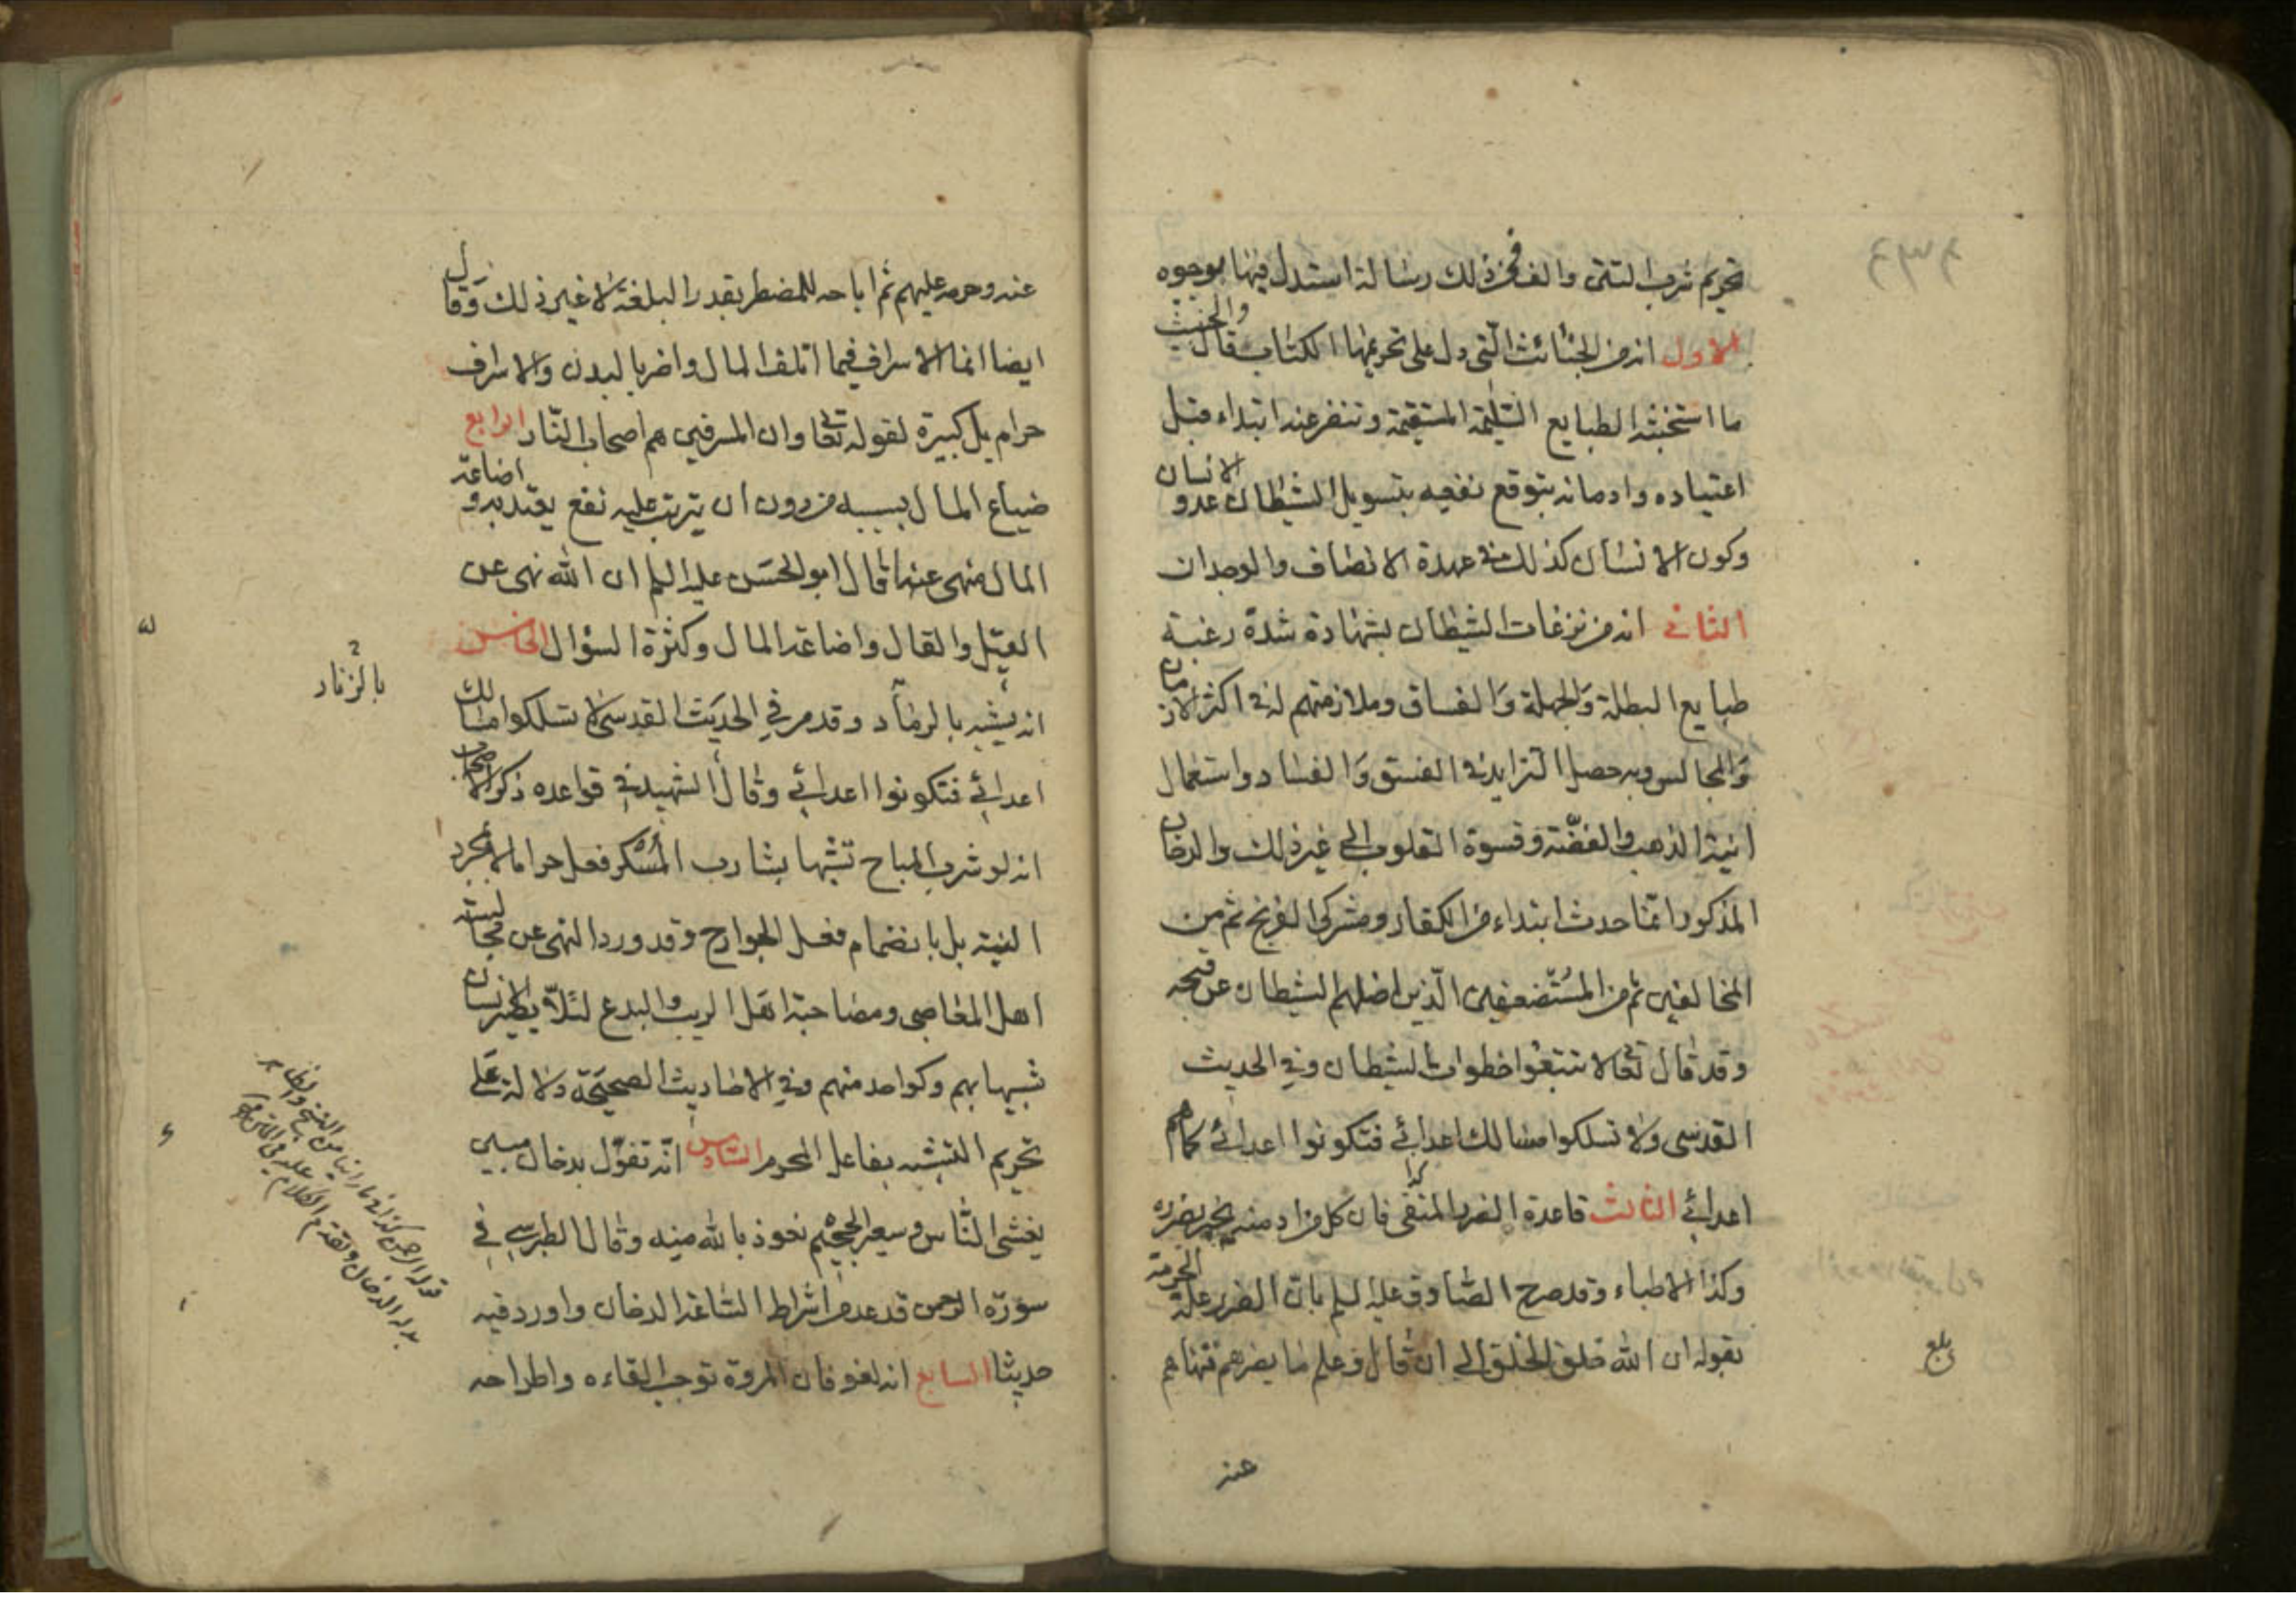 تحريم شرب التتن والف في ذلك رسالة استدل فيها بوجوه
الاول انه من الخبائث التي دل على تحريمها الكتاب قال والخبيث
ما استخبثه الطبايع السليمة المستقيمة وتنفر عنه ابتداء قبل
اعتياده وادمانه بتوقع نفعه بتسويل الشيطان عدو الانسان
وكون الانسان كذلك في عهدة الانصاف والوجدان
الثاني انه من نزغات الشيطان بشهادة شدة رغبة
طبايع البطلة والجهلة والفساق وملازمتهم له في اكثر الازمان
والمجالس وبه حصل التزايد في الفسق والفساد واستعمال
انية الذهب والفضة وقسوة القلوب الى غير ذلك والدخان
المذكور انما حدث ابتداء من الكفار ومشركي الفرنج ثم من
المخالفين ثم من المستضعفين الذين اضلهم الشيطان عن قبحه
وقد قال تعالى لا تتبعوا خطوات الشيطان وفي الحديث
القدسي ولا تسلكوا مسالك اعدائي فتكونوا اعدائي كما هم
اعدائي الثالث قاعدة الضرر المنفي فان كل من اد منه يخبر بضرره
وكذا الاطباء وقد صرح الصادق عليه السلم بان الضرر علة الحرمة
بقوله ان الله خلق الخلق الى ان قال وعلم ما يضرهم فنهاهم
بلغ
عنه
عنه وحرمه عليهم ثم اباحه للمضطر بقدر البلغة لا غير ذلك وقال
ايضا انما الاسراف فيما اتلف المال واضر بالبدن والاسراف
حرام بل كبيرة لقوله تعالى وان المسرفين هم اصحاب النار الرابع
ضياع المال بسببه من دون ان يترتب عليه نفع يعتد به و اضاعة
المال منهى عنها قال ابو الحسن عليه السلم ان الله نهى عن
القيل والقال واضاعة المال وكثرة السؤال الخامس
انه يشبه بالرماد وقد مر في الحديث القدسي لا تسلكوا مسالك
بالزناد
اعدائي فتكونوا اعدائي وقال الشهيد في قواعده ذكر الاصحاب
انه لو شرب المباح تشبها بشارب المسكر فعل حراما لا بمجرد
النية بل بانضمام فعل الجوارح وقد ورد النهى عن مجالسة
اهل المعاصي ومصاحبة اهل الريب والبدع لئلا يصير الانسان
شبيها بهم وكواحد منهم وفي الاحاديث الصحيحة دلالة على
تحريم التشبه بفاعل المحرم السادس انه تفؤل بدخان مبين
يغشى الناس وسعير الجحيم نعوذ بالله منه وقال الطبرسي في
سورة الرحمن قد عد من اشراط الساعة الدخان واورد فيه
حديثا السابع انه لغو فان المروة توجب القاءه واطراحه
قوله الرحمن كذا في ما راينا من النسخ